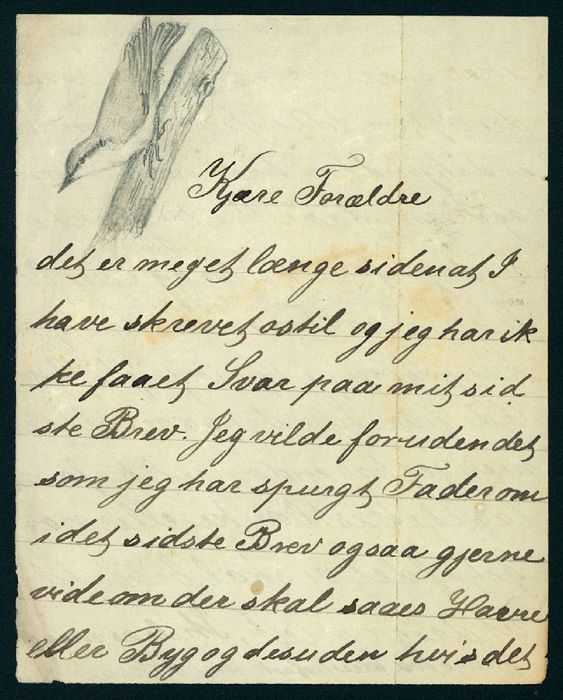 Kjære Forældre
det er meget længe siden at I
have skrevet os til og jeg har ik
ke faaet Svar paa mit sid
ste Brev. Jeg vilde foruden det
som jeg har spurgt Fader om
i det sidste Brev ogsaa gjerne
vide om der skal saaes Havre
eller Byg og desuden hvis det